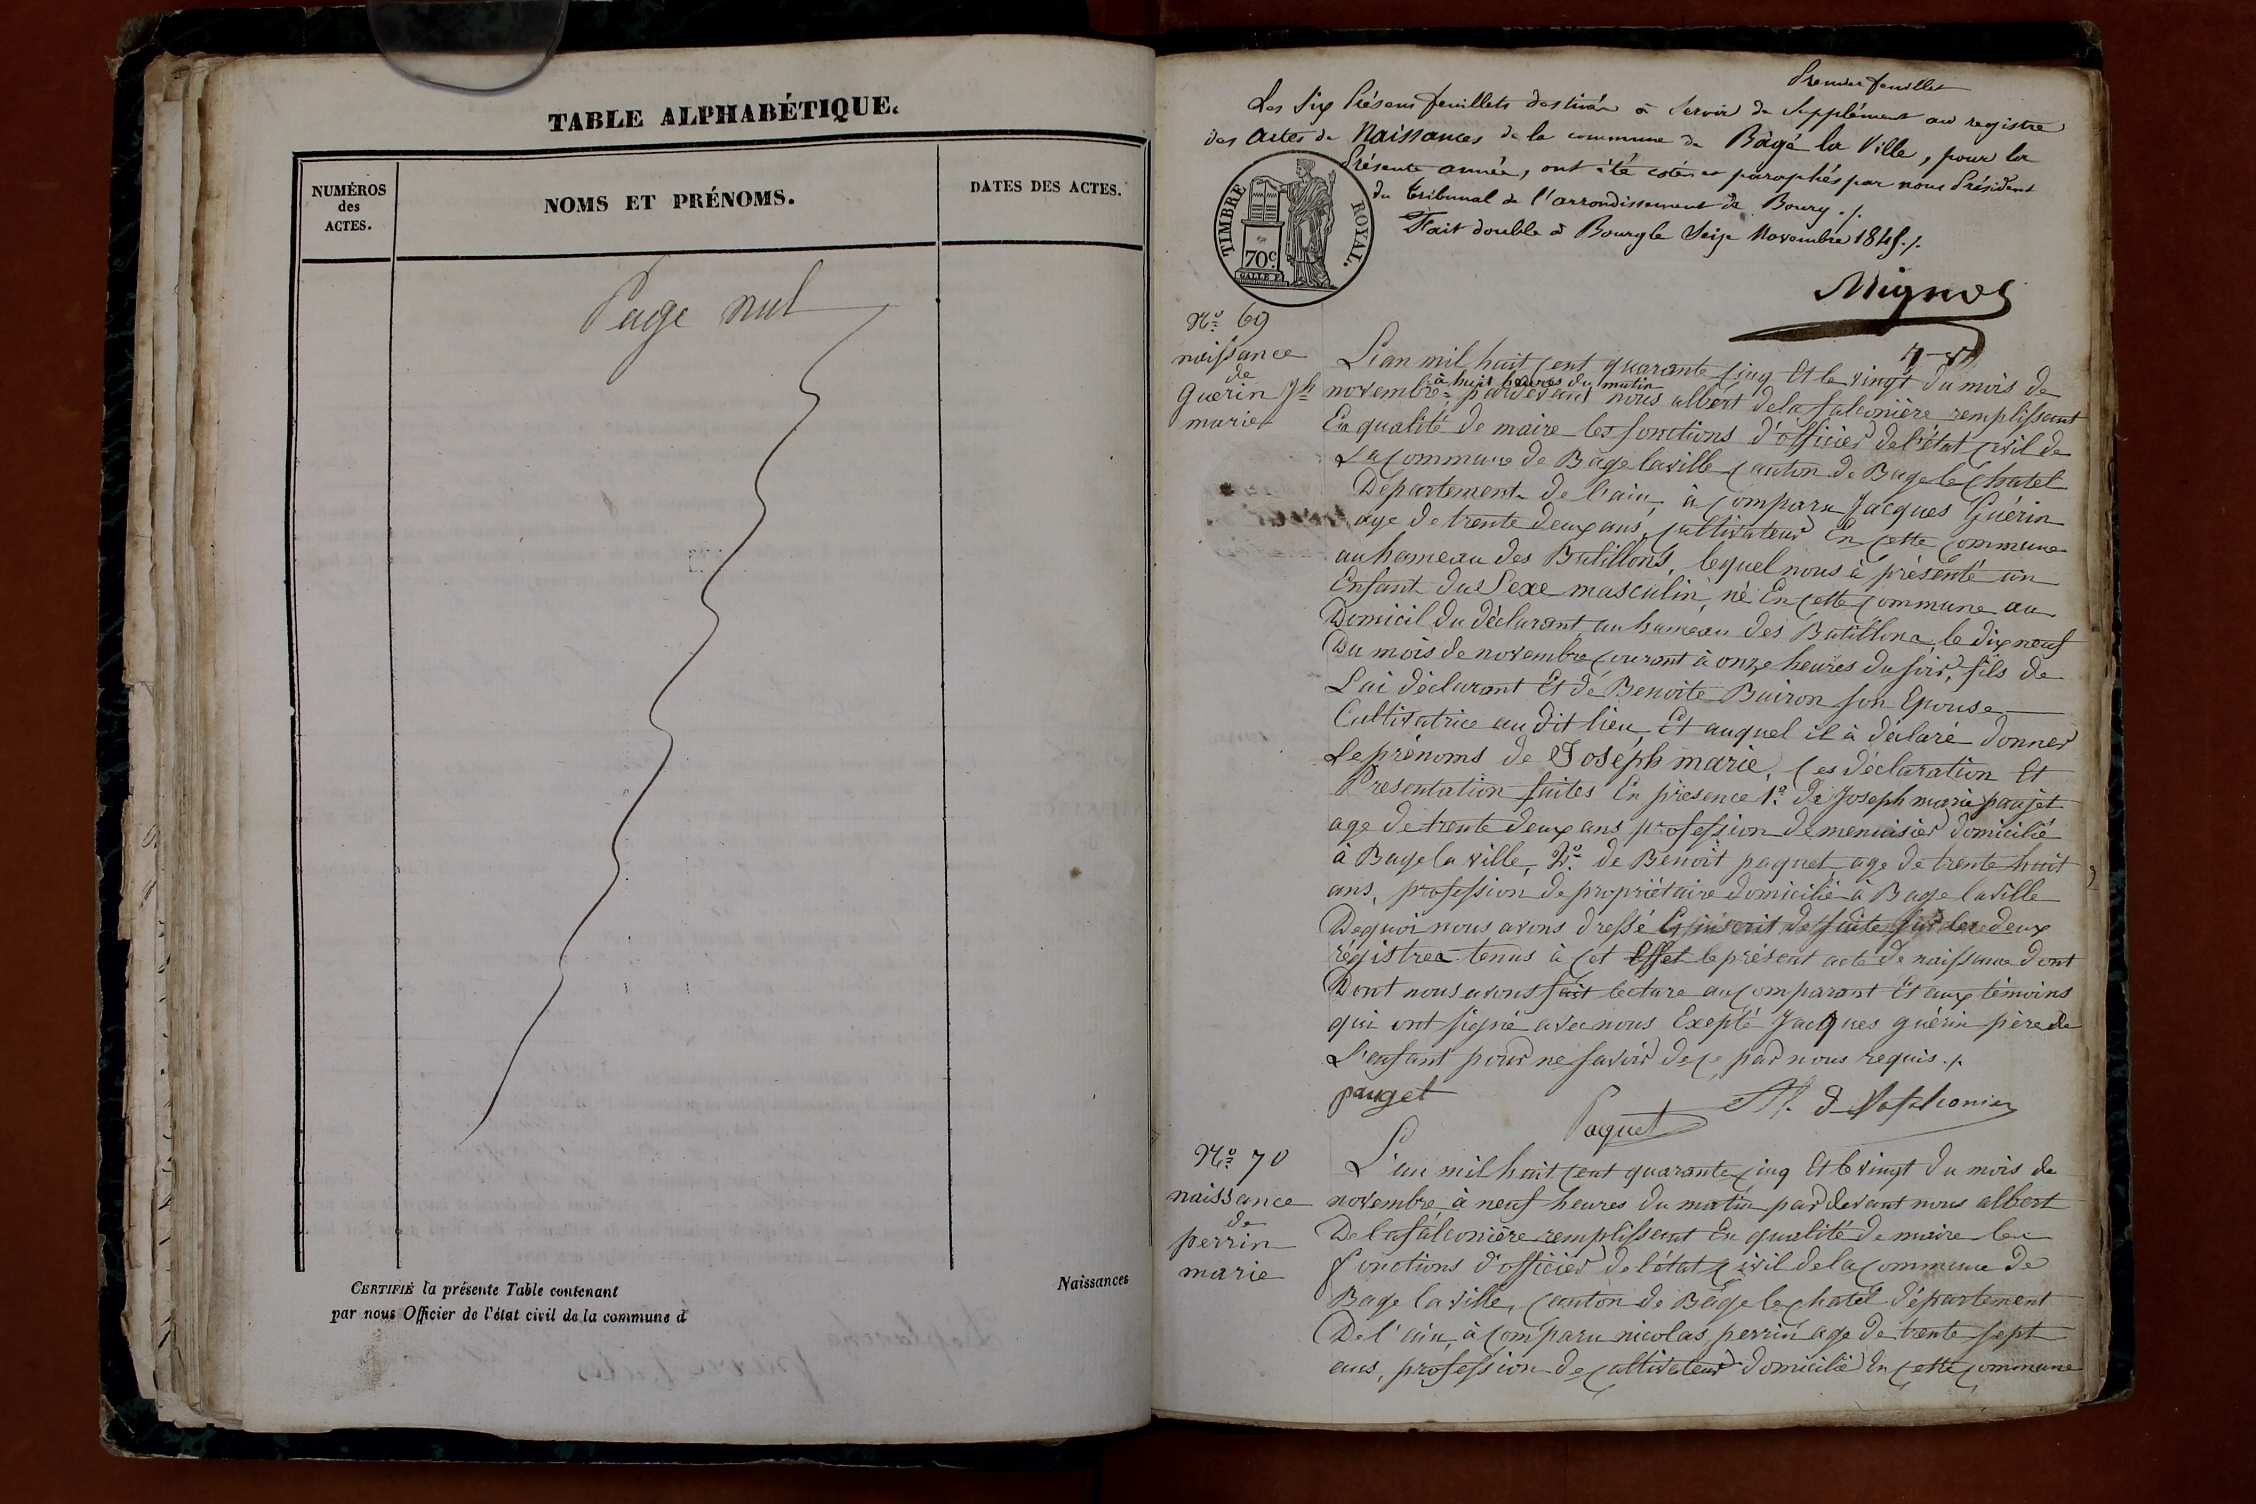 TABLE ALPHABÉTIQUE.
NUMÉROS
des
ACTES.
NOMS ET PRÉNOMS.
DATES DES ACTES.
Page nul
CERTIFIÉ la présente Table contenant
par nous Officier de l'état civil de la commune d
Naissances
Premier feuillet
Les Six Présens feuillets destinés à Servir de Supplément au registre
des Actes de Naissances de la commune de Bâgé la Ville, pour la
Présente année, ont été cotés et paraphés par nous Président
du Tribunal de l'arrondissement de Bourg ./.
Fait double à Bourg le Seize Novembre 1845 ./.
TIMBRE ROYAL.
70 c.
Nº 69
naissance
de
Guerin Jh
marie
L'an mil huit cent quarante cinq Et le vingt du mois de
à huit heures du matin
novembre, pardevant nous albert delafalconière remplissant
En qualité de maire les fonctions d'officier de l'état civil de
La commune de Bage laville canton de Bage le chatel
Departement de l'ain, à comparu Jacques Guérin
age de trente deux ans, cultivateur En cette commune
au hameau des Butillons, lequel nous à présenté un
Enfant du Sexe masculin, né En cette commune au
Domicil du déclarant au hameau des Butillons, le dix neuf
Du mois de novembre courant à onze heures du soir, fils de
Lui déclarant Et de Benoite Buiron son Epouse
Cultivatrice au dit lieu, Et auquel il à déclaré donner
Le prénoms de Joseph marie, ces déclaration Et
Presentation faites En présence 1º de Joseph marie pauget
age de trente deux ans profession de menuisier domicilié
à Bage la ville, 2º de Benoit paquet, age de trente huit
ans, profession de propriétaire domicilié à Bage laville
Dequoi nous avons dressé Et inscrit de suite sur les deux
régistres tenus à cet Effet le présent acte de naissance dont
Dont nous avons fait lecture au comparant Et aux témoins
qui ont signé avec nous Exepté Jacques guérin père de
L'enfant pour ne savoir de ce par nous requis ./.
pauget
Paquet
Nº 70
naissance
de
perrin
marie
L'an mil huit cent quarante cinq Et le vingt du mois de
novembre à neuf heures du matin pardevant nous albert
De lafalconière remplissant En qualité de maire les
fonctions d'officier de l'état civil de la commune de
Bage la ville, canton de Bage le chatel département
De l'ain, à comparu nicolas perrin age de trente sept
ans, profession de cultivateur domicilié En cette commune